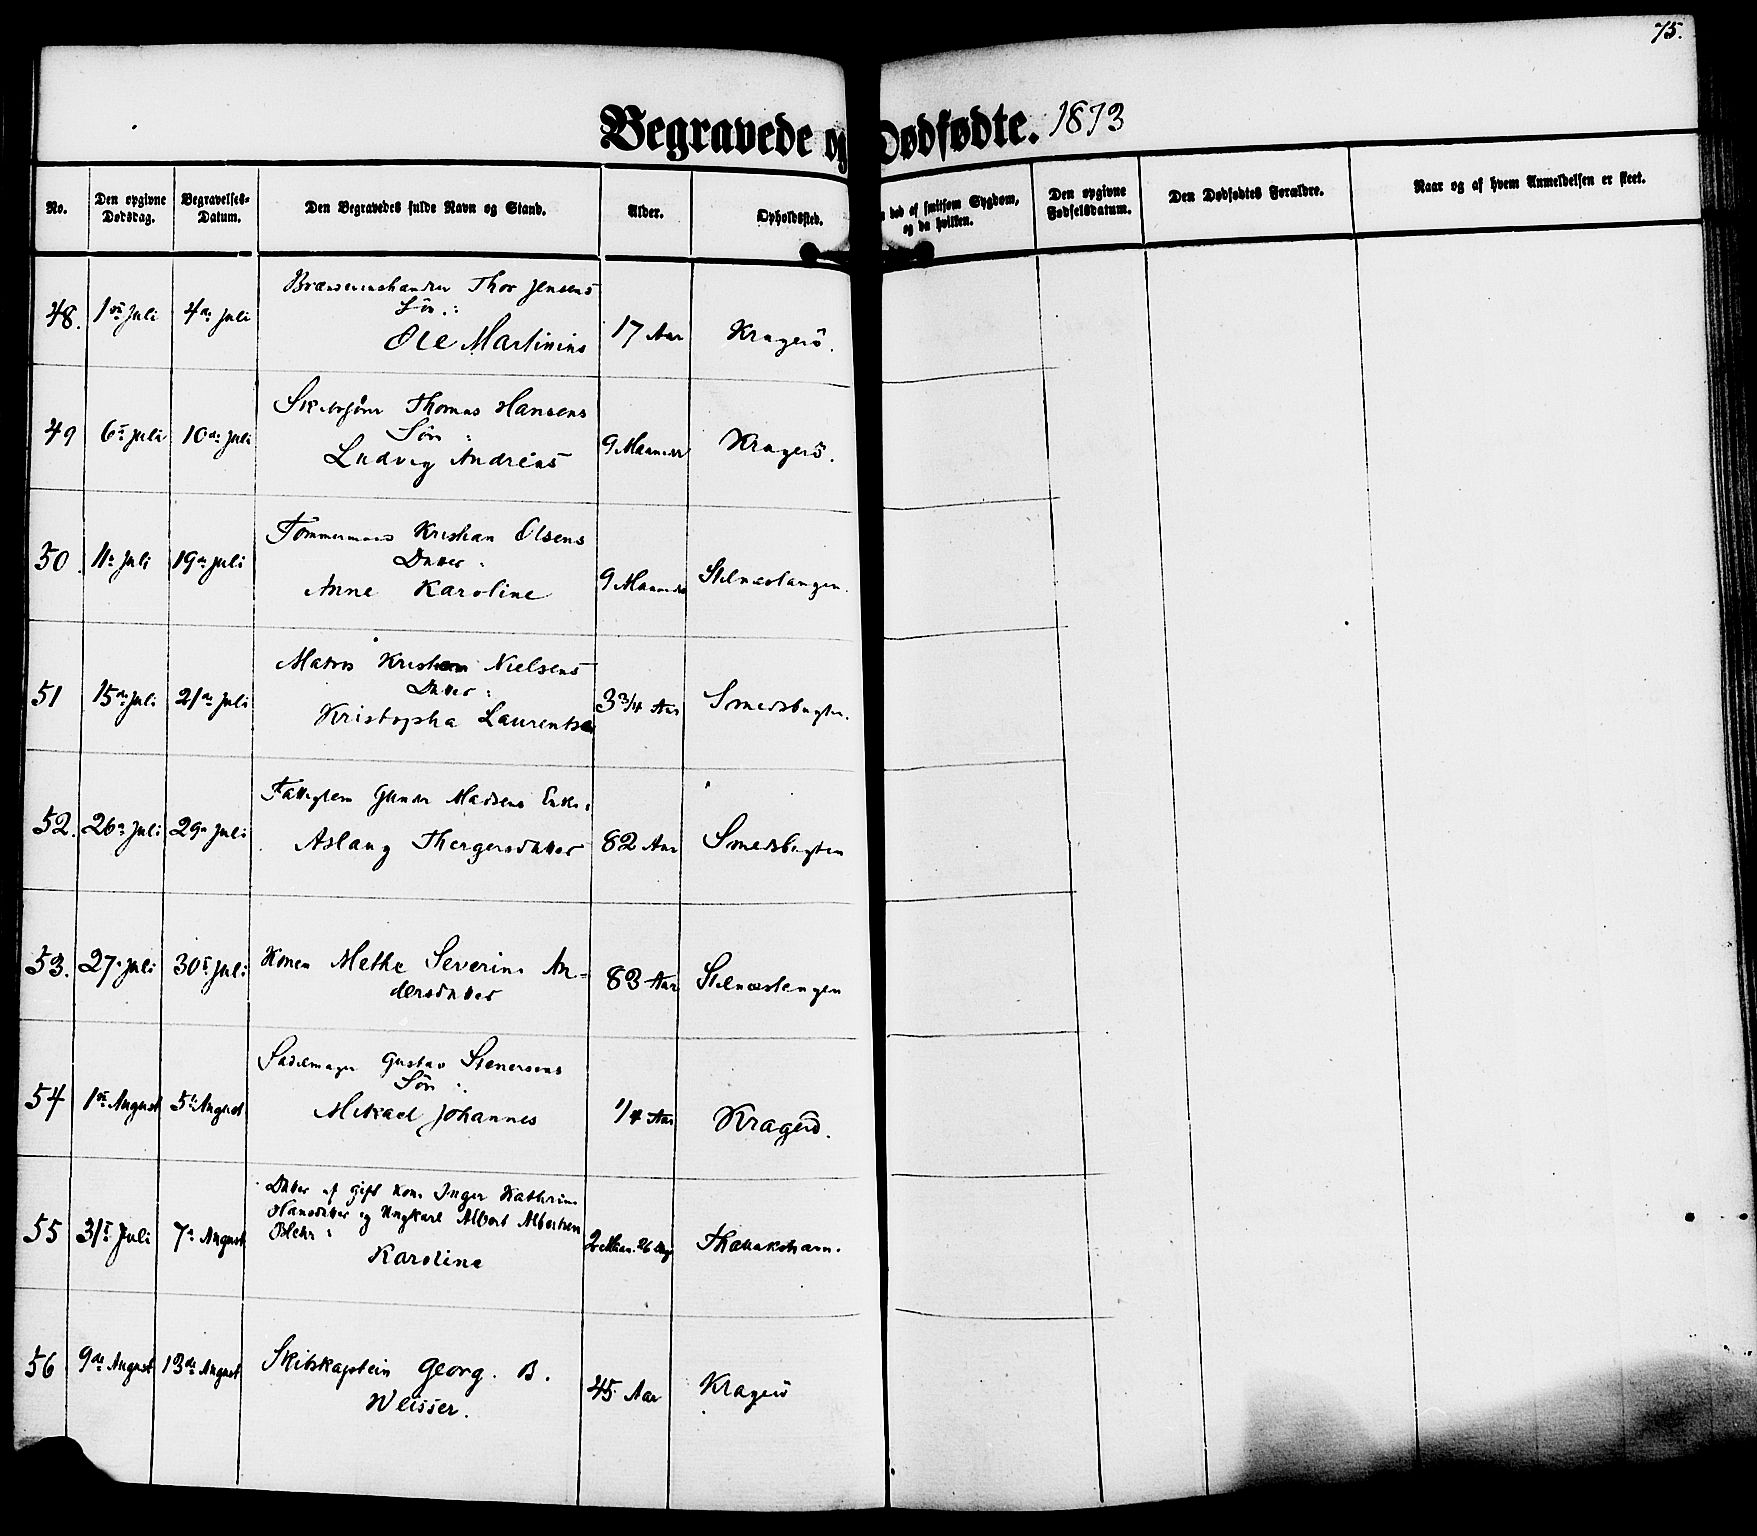 75.
Begravede og Dødfødte. 1873
No.
Den opgivne Dødsdag.
Begravelses-Datum.
Den Begravedes fulde Navn og Stand.
Alder.
Opholdssted.
død af smitsom Sygdom, og da hvilken.
Den opgivne Fødselsdatum.
Den Dødfødtes Forældre.
Naar og af hvem Anmeldelsen er skeet.
Thor Jensens
Søn:
48. 1ste Juli 4de Juli Ole Martinius 17 Aar Kragerö.
Thomas Hansens
Søn:
49 6te Juli 10de Juli Ludvig Andreas 9 Maaneder Kragerö.
Tömmermand Kristian Olsens
Datter:
50. 11te Juli 19de Juli Anne Karoline 9 Maaneder Stilnestangen.
Matros Kristian Nielsens
Datter:
51 15de Juli 21de Juli Kristopha Laurentse 3 3/4 Aar Smedsbugten.
Fattiglem Gunder Madsens Enke:
52. 26de Juli 29de Juli Aslaug Thergersdatter 82 Aar Smedsbugten
53. 27de Juli 30te Juli Konen Methe Severine An-
dersdatter 83 Aar Stilnestangen
Sadelmager Gustav Stenersens
Søn:
54 1ste August 5te August Mikael Johannes 1/4 Aar Kragerö.
Datter af gift Kone Inger Kathrine
Hansdatter og Ungkarl Albert Albertsen
Blehr:
55 31te Juli 7de August Karoline 2 Maan. 26 Dage
56. 9de August 13de August Skibskaptein Georg. B.
Wlisser. 45 Aar Kragerö